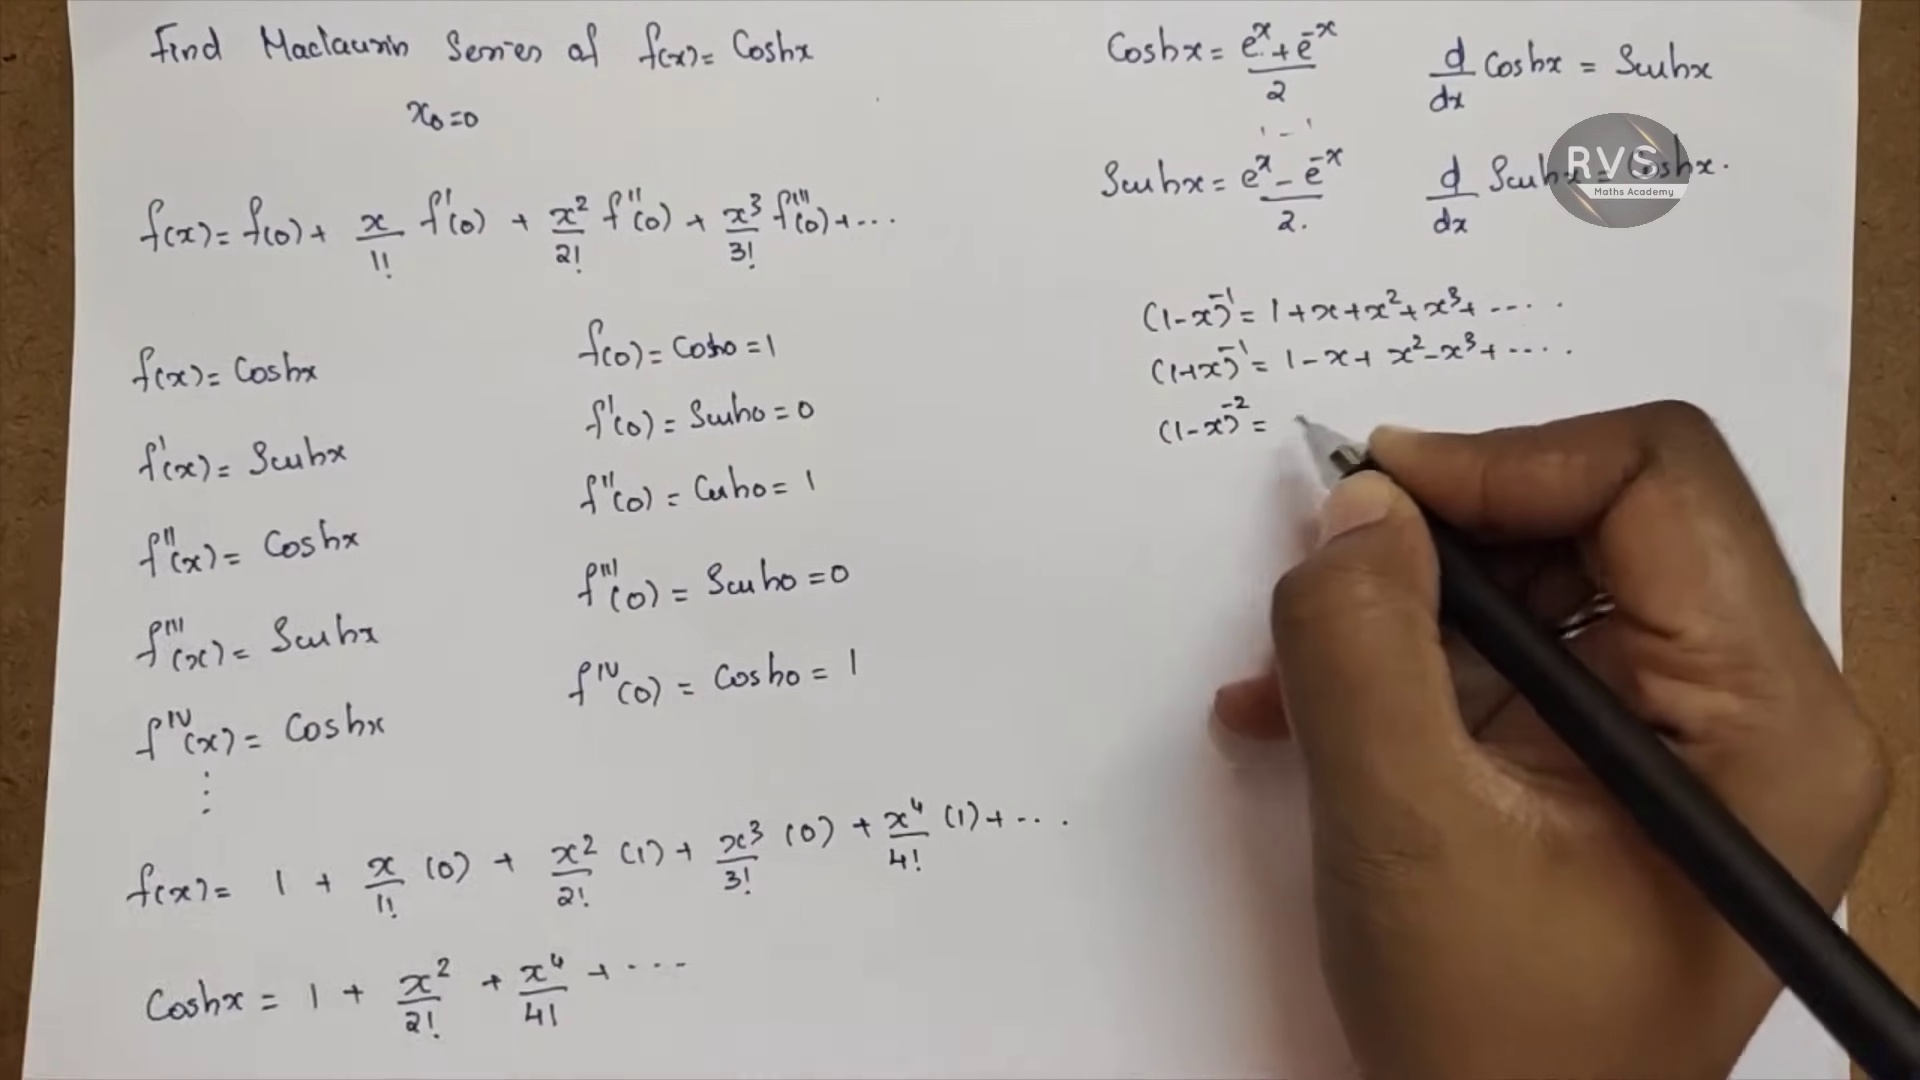 Find Maclaurin Series of f(x) = Coshx
x₀=0
f(x) = f(0) + x/1! f'(0) + x²/2! f''(0) + x³/3! f'''(0) + ...
f(x) = Coshx
f(0) = Cosh0 = 1
f'(x) = Sinhx
f'(0) = Sinh0 = 0
f''(x) = Coshx
f''(0) = Cosh0 = 1
f'''(x) = Sinhx
f'''(0) = Sinh0 = 0
f^IV(x) = Coshx
f^IV(0) = Cosh0 = 1
⋮
f(x) = 1 + x/1! (0) + x²/2! (1) + x³/3! (0) + x⁴/4! (1) + ...
Coshx = 1 + x²/2! + x⁴/4! + ...
Coshx = (eˣ + e⁻ˣ)/2
d/dx Coshx = Sinhx
1 - 1
Sinhx = (eˣ - e⁻ˣ)/2.
d/dx Sinhx = Coshx.
RVS
Maths Academy
(1-x)⁻¹ = 1+x+x²+x³+ ....
(1+x)⁻¹ = 1-x+x²-x³+ ....
(1-x)⁻² =